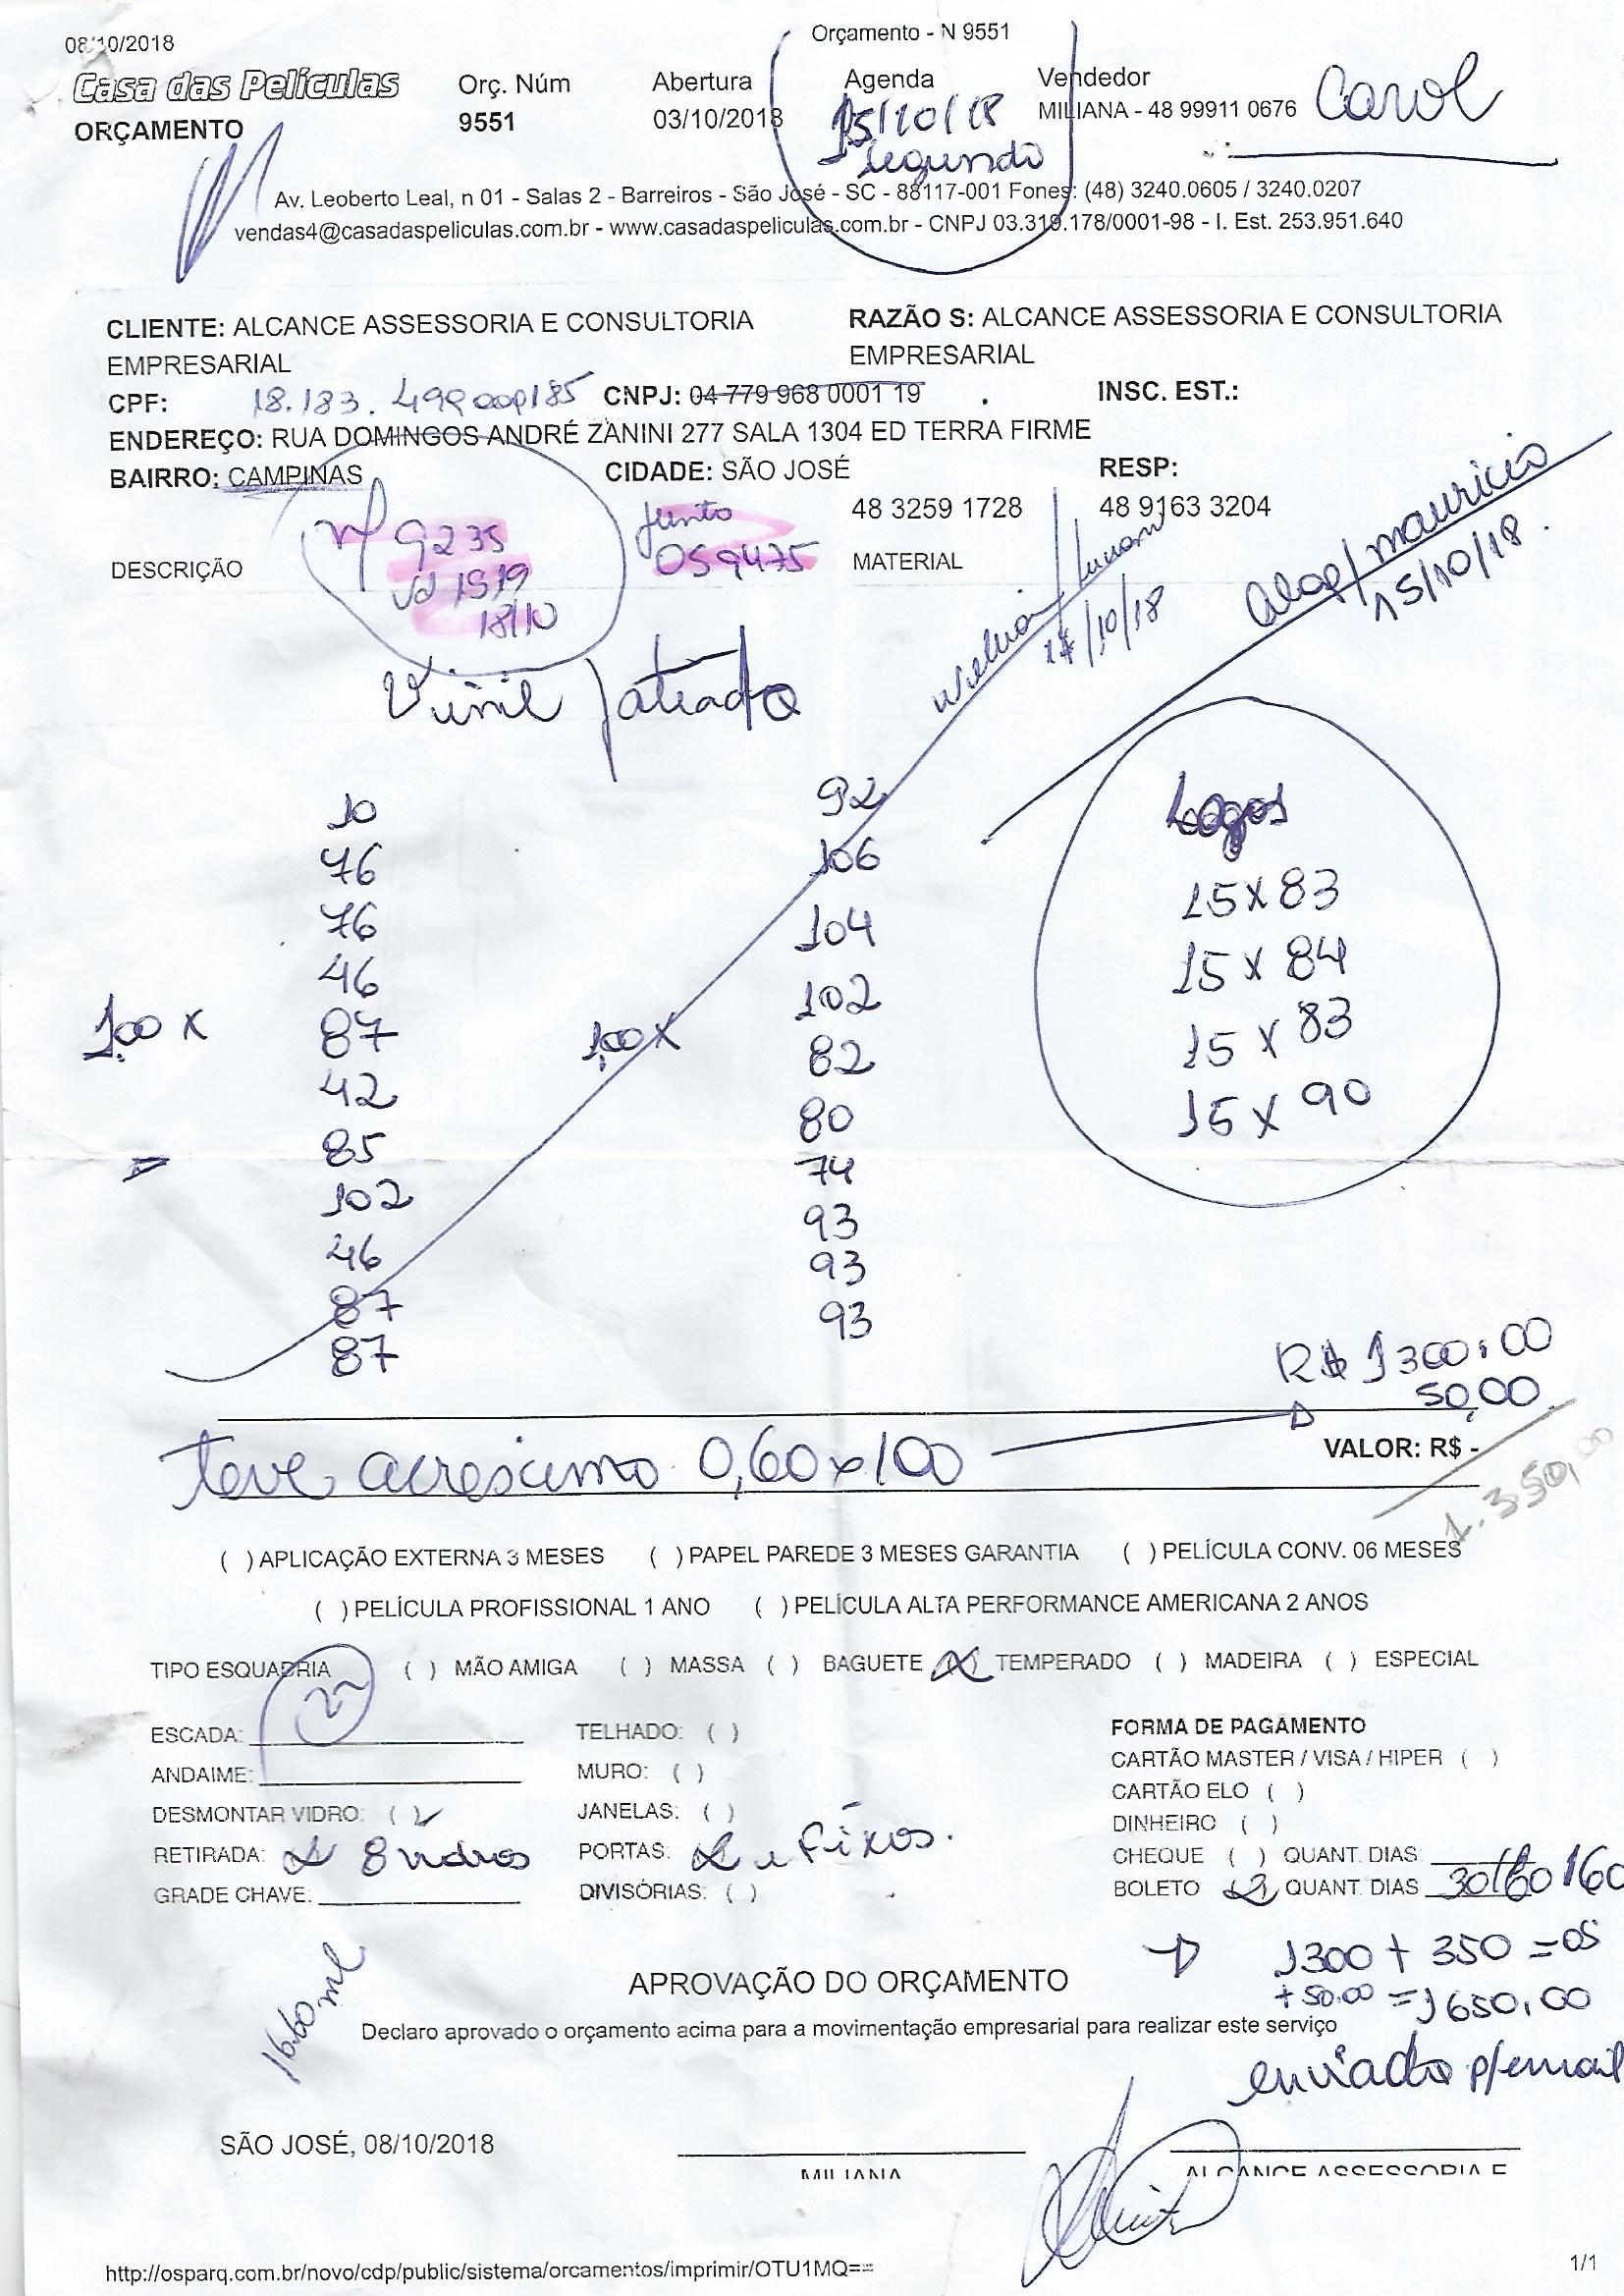 08/10/2018
Orçamento - N 9551
Casa das Películas
ORÇAMENTO
Orç. Núm
9551
Abertura
03/10/2018
Agenda
15/10/18
segunda
Vendedor
MILIANA - 48 99911 0676
Carol
Av. Leoberto Leal, n 01 - Salas 2 - Barreiros - São José - SC - 88117-001 Fones: (48) 3240.0605 / 3240.0207
vendas4@casadaspeliculas.com.br - www.casadaspeliculas.com.br - CNPJ 03.319.178/0001-98 - I. Est. 253.951.640
CLIENTE: ALCANCE ASSESSORIA E CONSULTORIA
EMPRESARIAL
RAZÃO S: ALCANCE ASSESSORIA E CONSULTORIA
EMPRESARIAL
CPF: CNPJ: 04 779 968 0001 19 INSC. EST.:
ENDEREÇO: RUA DOMINGOS ANDRÉ ZANINI 277 SALA 1304 ED TERRA FIRME
BAIRRO: CAMPINAS CIDADE: SÃO JOSÉ RESP:
48 3259 1728 48 9163 3204
nf 9235
vd 1519
18/10
junto
OS 9475
DESCRIÇÃO MATERIAL
/10/18
mauricio
15/10/18.
Vinil jateado
100 x
10
76
76
46
87
42
85
102
46
87
87
100 x
92
106
104
102
82
80
74
93
93
93
Logos
15 x 83
15 x 84
15 x 83
15 x 90
R$ 1300,00
50,00
teve acrescimo 0,60x100
VALOR: R$ -
1.350,00
( ) APLICAÇÃO EXTERNA 3 MESES ( ) PAPEL PAREDE 3 MESES GARANTIA ( ) PELÍCULA CONV. 06 MESES
( ) PELÍCULA PROFISSIONAL 1 ANO ( ) PELÍCULA ALTA PERFORMANCE AMERICANA 2 ANOS
TIPO ESQUADRIA ( ) MÃO AMIGA ( ) MASSA ( ) BAGUETE (X) TEMPERADO ( ) MADEIRA ( ) ESPECIAL
ESCADA:
ANDAIME:
DESMONTAR VIDRO: ( )
RETIRADA: 8 vidros
GRADE CHAVE:
TELHADO: ( )
MURO: ( )
JANELAS: ( )
PORTAS: e fixos.
DIVISÓRIAS: ( )
FORMA DE PAGAMENTO
CARTÃO MASTER / VISA / HIPER ( )
CARTÃO ELO ( )
DINHEIRO ( )
CHEQUE ( ) QUANT. DIAS:
BOLETO QUANT. DIAS
1300 + 350 = OS
+ 50,00 = 1650,00
1660 ml
APROVAÇÃO DO ORÇAMENTO
Declaro aprovado o orçamento acima para a movimentação empresarial para realizar este serviço
enviado p/email
SÃO JOSÉ, 08/10/2018
MILIANA
ALCANCE ASSESSORIA E
http://osparq.com.br/novo/cdp/public/sistema/orcamentos/imprimir/OTU1MQ==
1/1